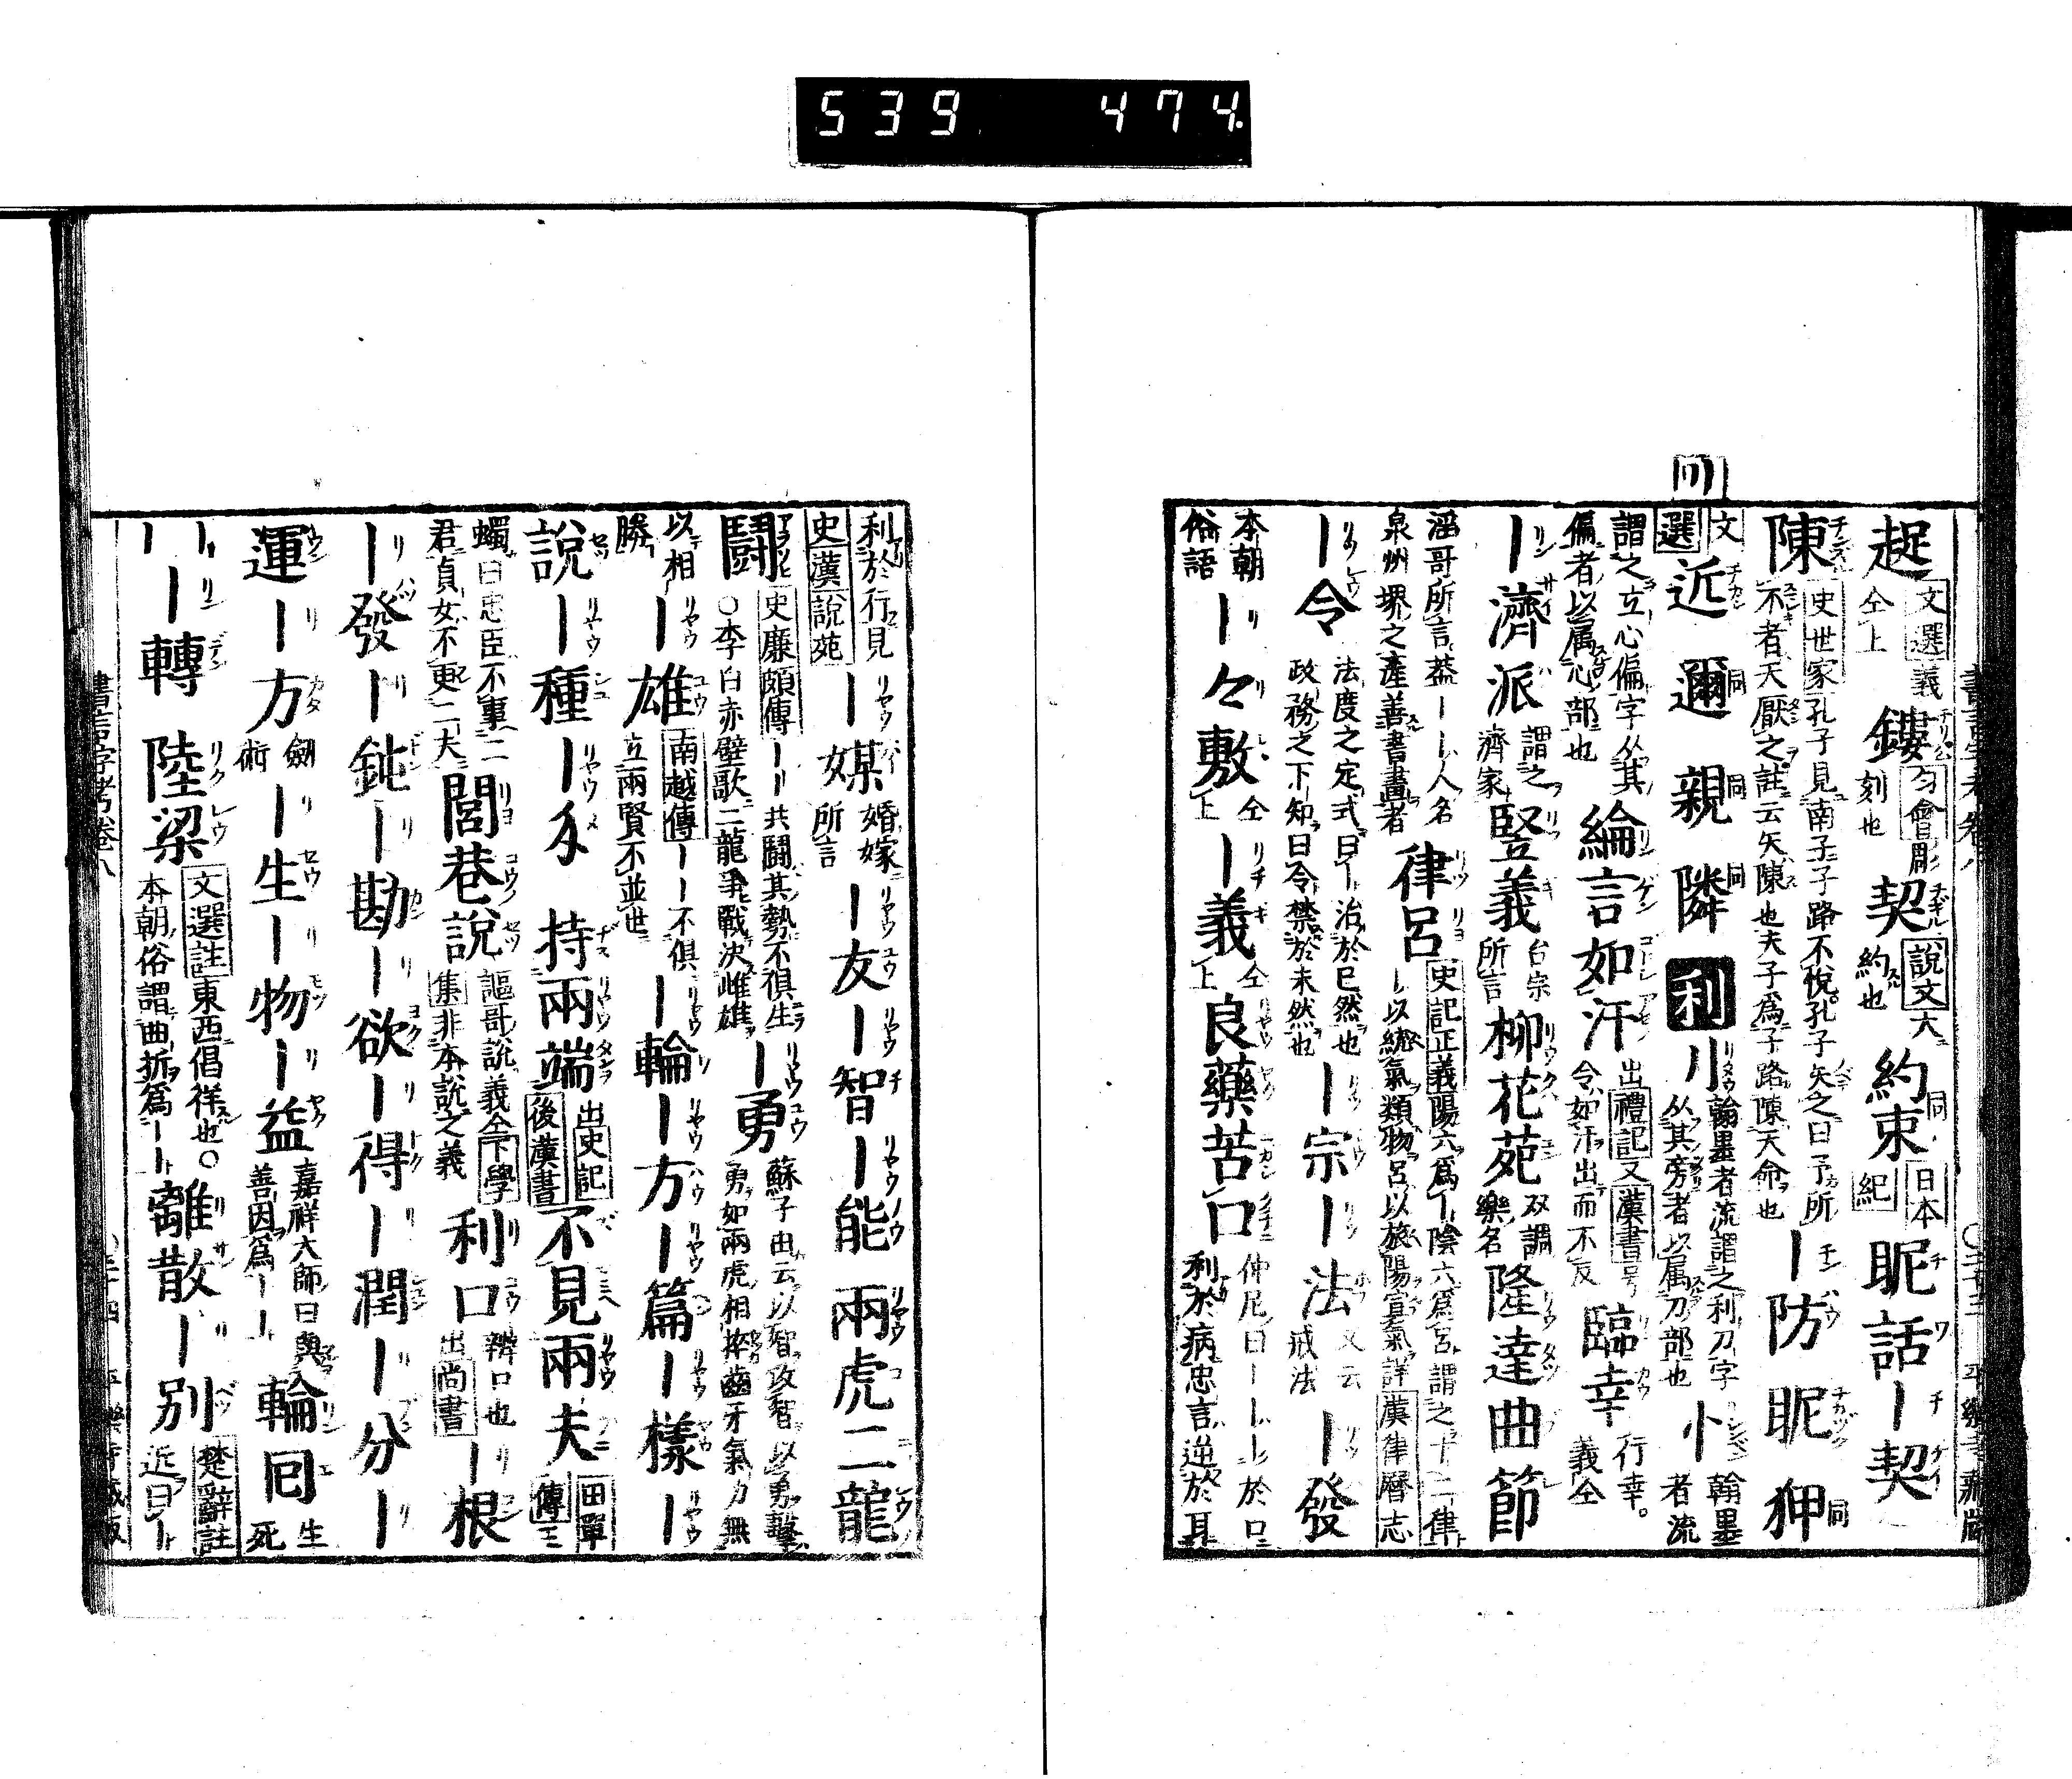 539 474.
趗 文選義仝上 鏤 匀會彫刻也 契 說文大約也 約束 日本紀 昵話 ー契
陳 史世家孔子見南子子路不悅孔子矢之曰予所不者天厭之註云矢陳也夫子爲子路陳天命也 ー防 昵 狎
文選 近 邇 親 隣 利 刂 翰墨者流謂之利刀字从其旁者以属刀部也 忄 翰墨者流
謂之立心偏字从其偏者以属心部也 綸言如汗 出禮記又漢書号令如汗出而不反 臨幸 行幸。義仝
ー濟派 謂之濟家 竪義 台宗所言 柳花苑 双調樂名 隆達曲節
滛哥所言蓋ーー人名泉州堺之產善書畫者 律呂 史記正義陽六爲ー陰六爲呂謂之十二律ー以統氣類物呂以旅陽宣氣詳漢律曆志
ー令 法度之定式曰ー治於已然也政務之下知曰令禁於未然也 ー宗 ー法 又云戒法 ー發
本朝俗語 ー々敷 仝上 ー義 仝上 良藥苦口 仲尼曰ーーー於口利於病忠言逆於耳
利於行見史漢說苑 ー媒 婚嫁所言 ー友 ー智 ー能 兩虎二龍
鬪 史廉頗傳ーー共鬪其勢不俱生○李白赤壁歌二龍爭戰決雌雄 ー勇 蘇子由云以智攻智以勇擊勇如兩虎相捽齒牙氣力無
以相勝 ー雄 南越傳ーー不俱立兩賢不並世 ー輪 ー方 ー篇 ー樣 ー
說 ー種 ー 持兩端 出史記後漢書 不見兩夫 田單傳王
蠋曰忠臣不事二君貞女不更二夫 閭巷說 謳哥說義仝下學集非本說之義 利口 辨口也出尚書 ー根
ー發 ー鈍 ー勘 ー欲 ー得 ー潤 ー分 ー
運 ー方 劔術 ー生 ー物 ー益 嘉祥大師曰與善因爲ーー 輪囘 生死
ーー ー轉 陸梁 文選註東西倡祥也○本朝俗謂曲折爲ー 離散 ー別 楚辭註近曰ー
書言字考卷八